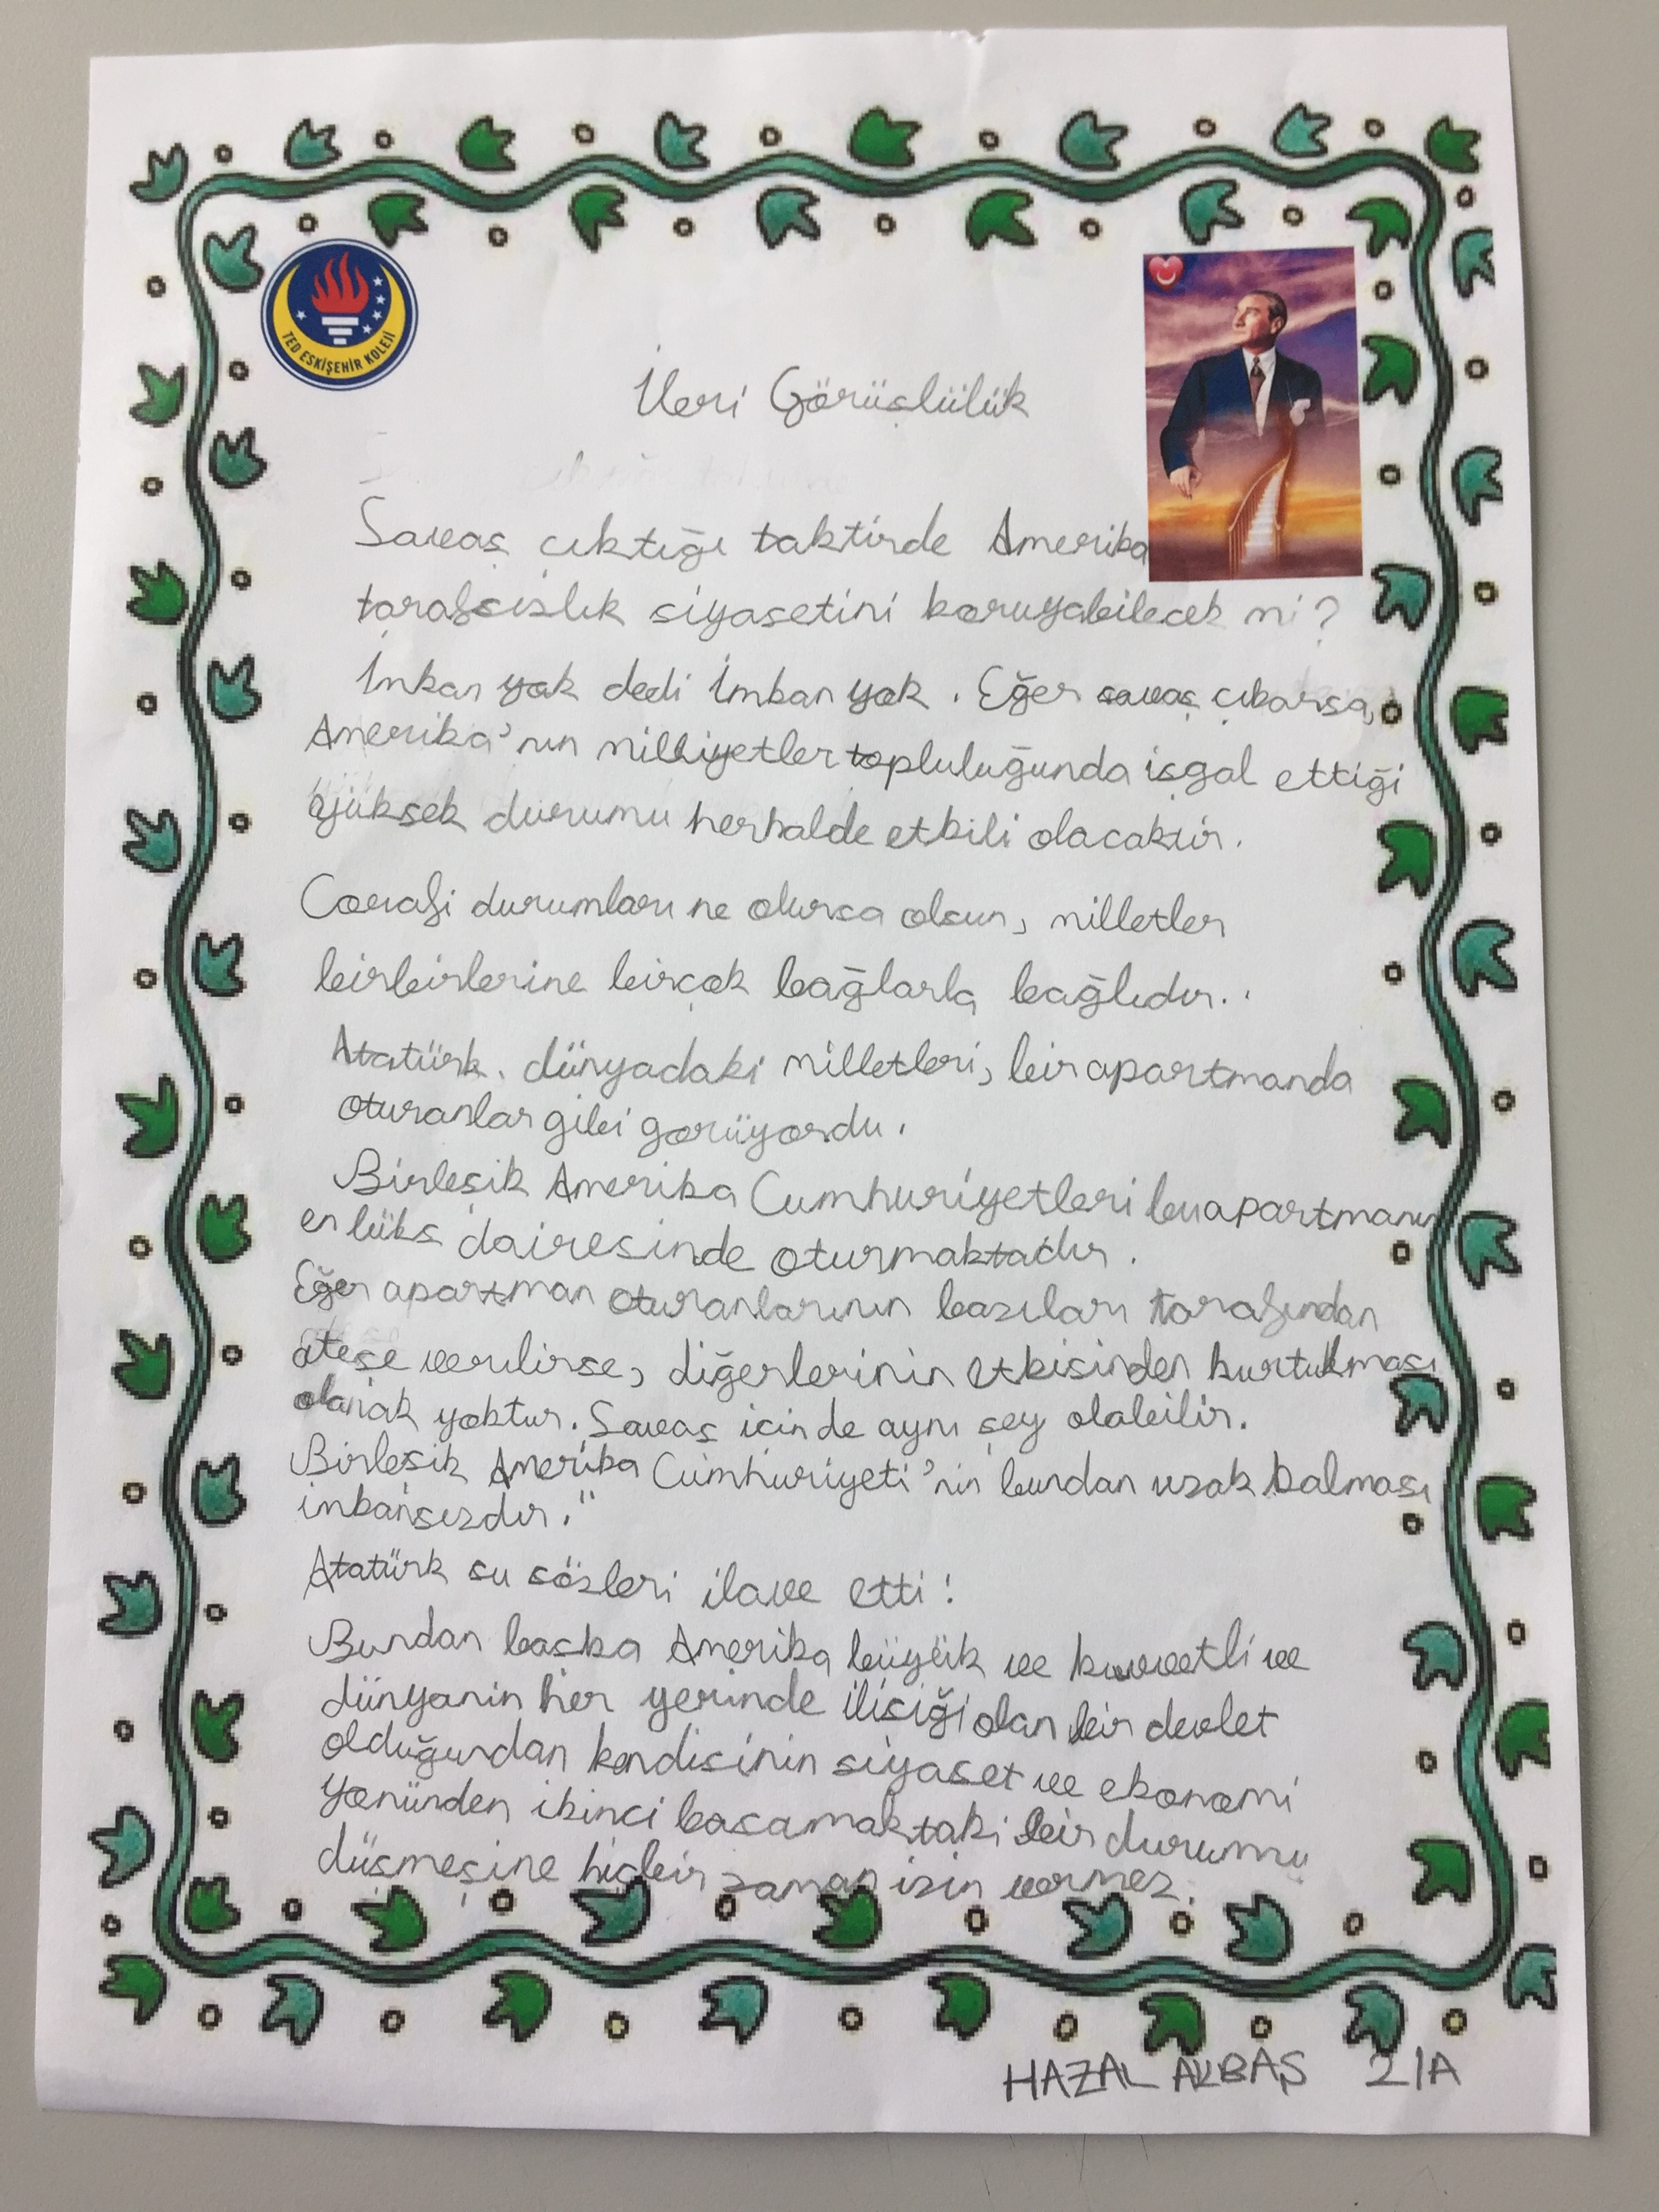 TED ESKİŞEHİR KOLEJİ
İleri Görüşlülük
Savaş çıktığı taktirde Amerika
tarafsızlık siyasetini koruyabilecek mi?
İmkan yok dedi İmkan yok. Eğer savaş çıkarsa,
Amerika'nın milliyetler topluluğunda işgal ettiği
yüksek durumu herhalde etkili olacaktır.
Corafi durumları ne olursa olsun, milletler
birbirlerine birçok bağlarla bağlıdır..
Atatürk. dünyadaki milletleri, bir apartmanda
oturanlar gibi görüyordu.
Birleşik Amerika Cumhuriyetleri bu apartmanın
en lüks dairesinde oturmaktadır.
Eğer apartman oturanlarının bazıları tarafından
ateşe verilirse, diğerlerinin etkisinden kurtulması
olanak yoktur. Savaş içinde aynı şey olabilir.
Birleşik Amerika Cumhuriyeti'nin bundan uzak kalması
imkansızdır."
Atatürk su sözleri ilave etti!
Bundan baska Amerika büyük ve kuvvetli ve
dünyanin her yerinde ilisiği olan bir devlet
olduğundan kendisinin siyaset ve ekonomi
yönünden ikinci basamaktaki bir durumu
düşmeşine hiçbir zaman izin vermez.
HAZAL AKBAŞ 2/A